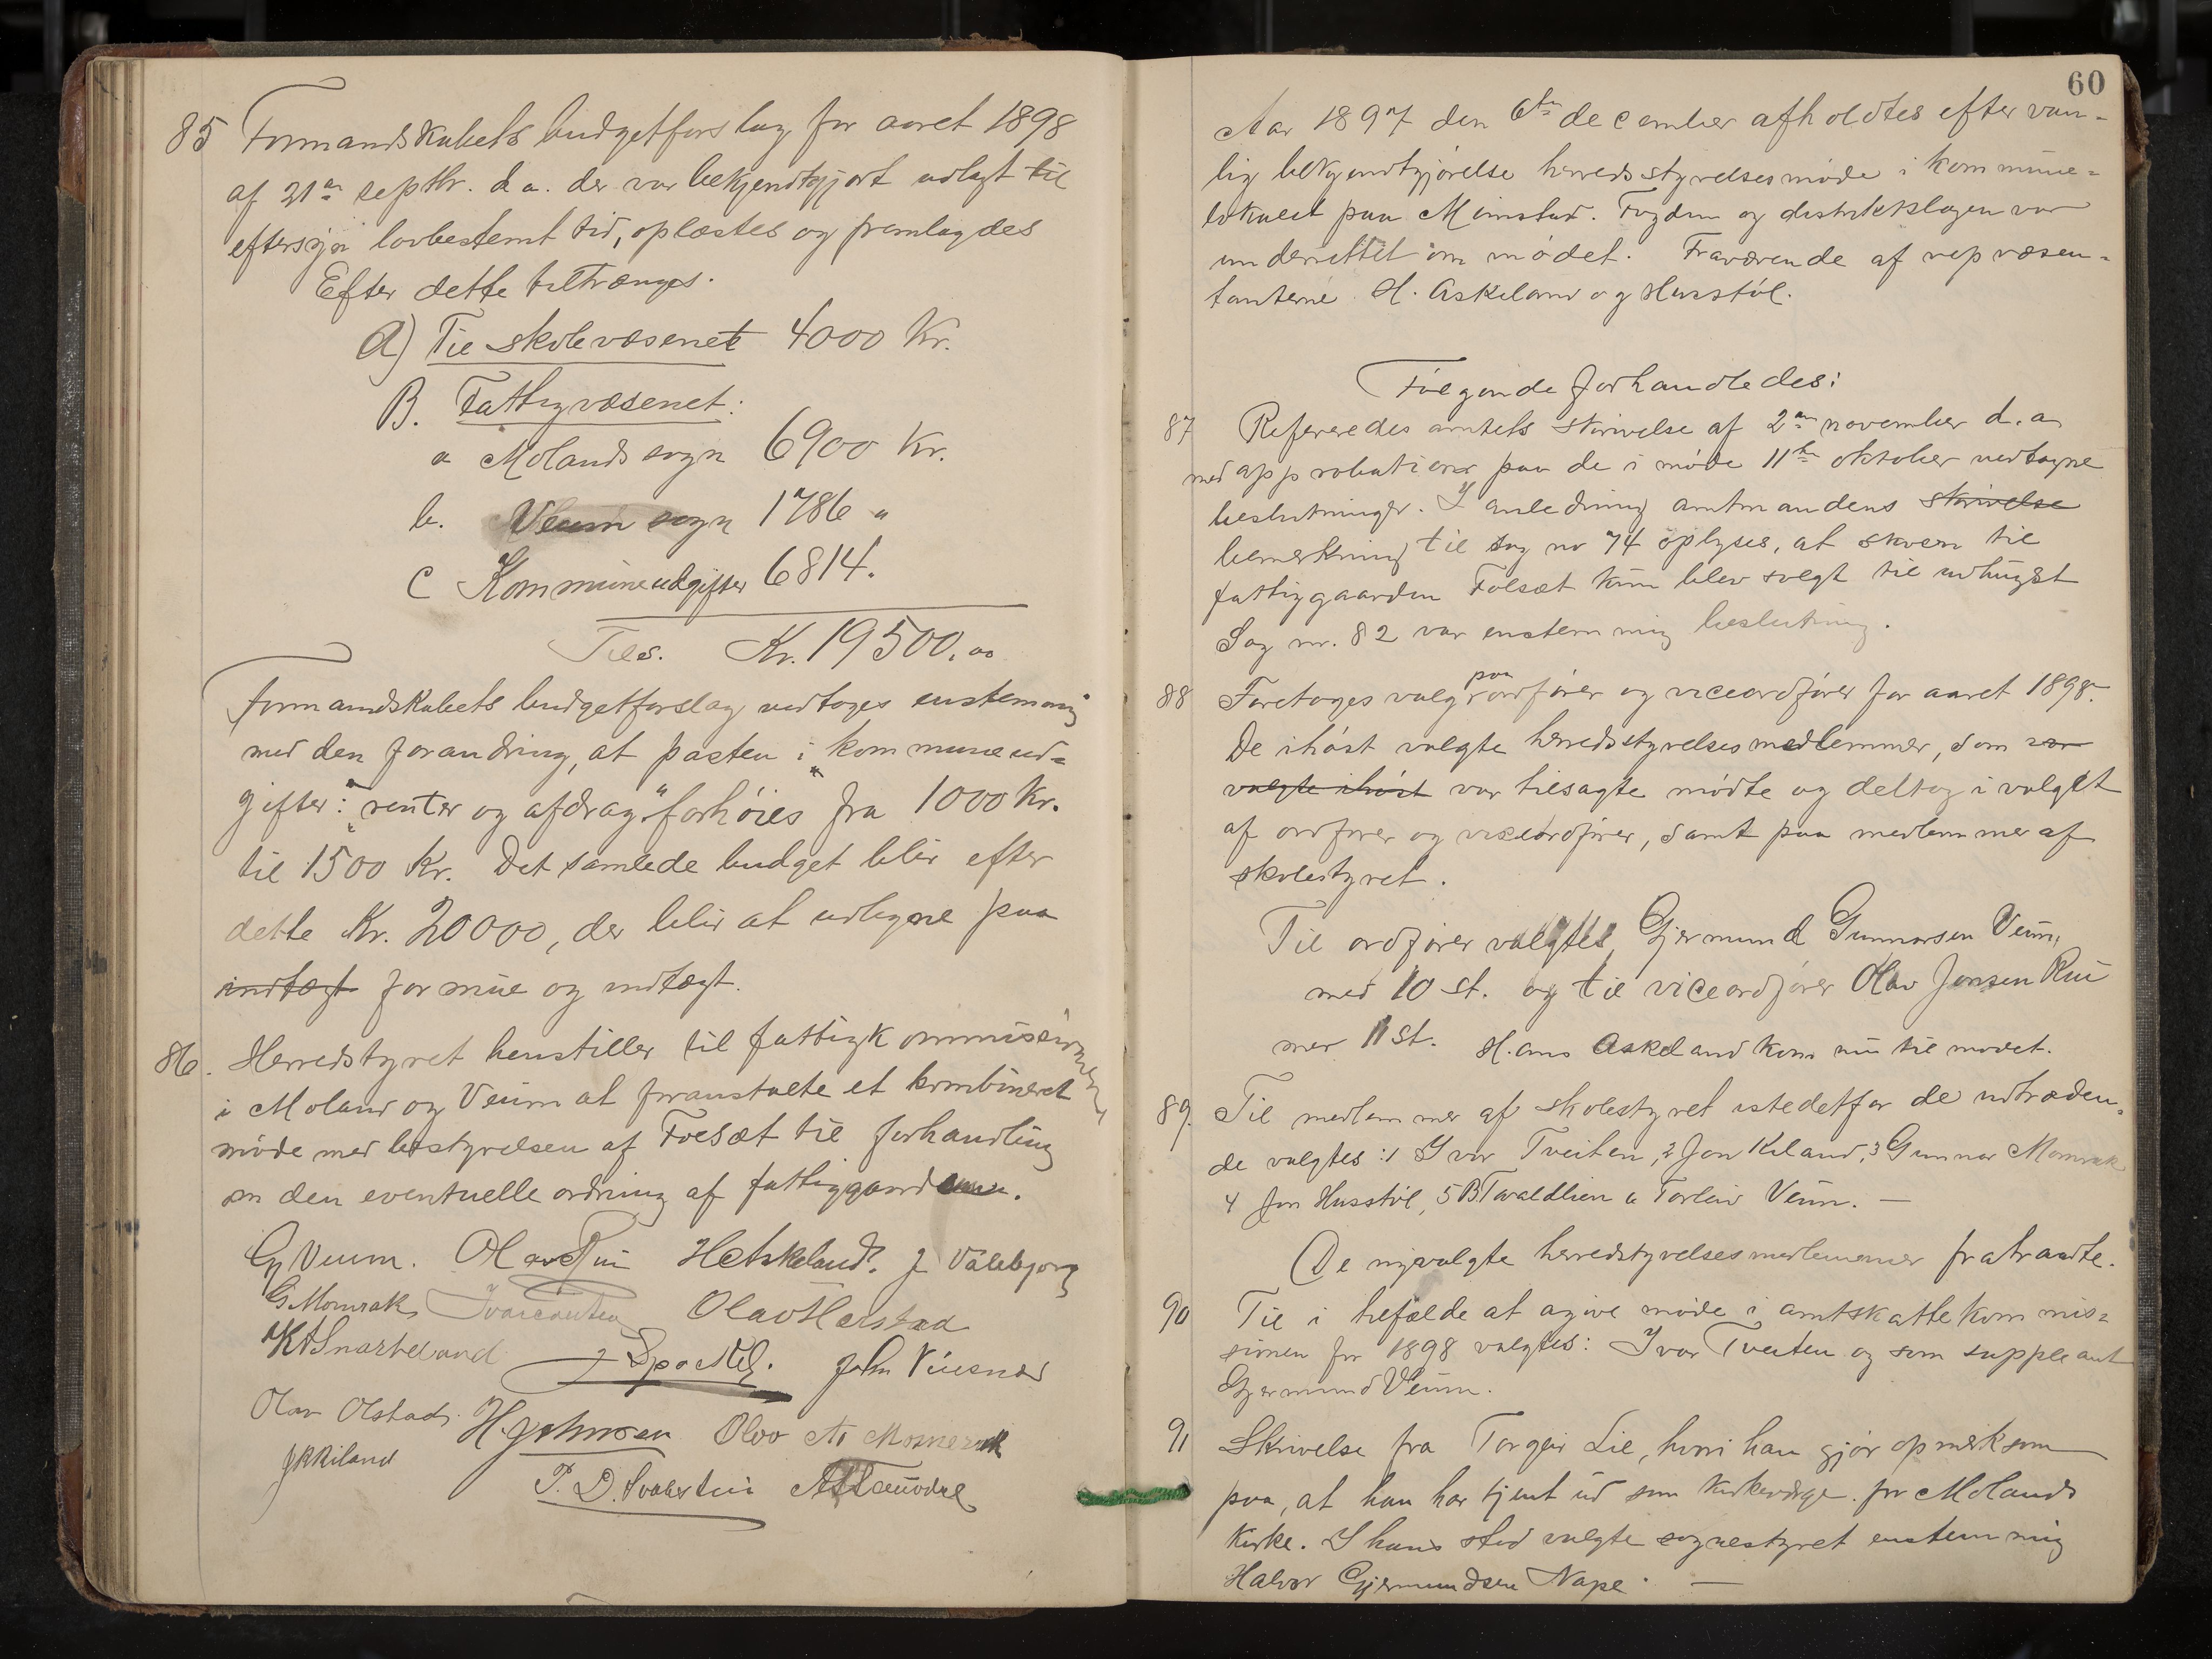 85 Formandskabets budgetforslag for aaret 1898
af 21de septbr. d.a. der var bekjendtgjort udlagt til
eftersyn lovbestemt tid, oplæstes og fremlagdes
Efter dette tiltrænges.
A) Til skolevæsenet 4000 Kr.
B. Fattigvæsenet:
a Molands sogn 6900 Kr.
b. Veum sogn 1786 "
C Kommuneudgifter 6814.
Tils. Kr. 19500,00
Formandskabets budgetforslag vedtoges enstemmig
med den forandring, at posten i "kommuneud-
gifter": "renter og afdrag" forhöies fra 1000 Kr.
til 1500 Kr. Det samlede budget blir efter
dette Kr. 20000, der blir at udligne paa
indtægt formue og indtægt.
86. Herredstyret henstiller til fattigkommissionen
i Moland og Veum at foranstalte et kombineret
möde med bestyrelsen af Folsæt til forhandling
om den eventuelle ordning af fattiggaarden.
Gj Veum. Olav Rui H Askeland. J Välebjorg
G Momrak Ivar Tveiten Olav Harstad
K A Snarteland J Spockel. John Viesnes
Olav Olstad. H. Johnsen Olav A. Momrak
J K Kiland
P. D. A
60
Aar 1897 den 6te december afholdtes efter van-
lig bekjendtgjörelse herredsstyrelsesmöde i kommune-
lokalet paa Mimstad. Fogden og distriktslægen var
underrettet om mödet. Fraværende af repræsen-
tanterne H. Askeland og Husstöl.
Fölgende forhandledes:
87 Refereredes amtets skrivelse af 2den november d.a
med approbationer paa de i möde 11te oktober vedtagne
beslutninger. I anledning amtmandens skrivelse
bemerkning til sag no 74 oplyses, at skoven til
fattiggaarden Folsæt kun blev solgt til udhugst
Sag nr. 82 var enstemmig beslutning.
88 Foretoges valg paa ordförer og viceordförer for aaret 1898.
De ihöst valgte herredsstyrelsesmedlemmer, som var
valgte ihöst var tilsagte mödte og deltog i valget
af ordförer og viceordförer, samt paa medlemmer af
skolestyret.
Til ordförer valgtes Gjermund Gunnarsen Veum,
med 10 st. og til viceordförer Olav Jonsen Rui
med 11 st. Hans Askeland kom nu til mødet.
89. Til medlemmer af skolestyret istedetfor de udtræden-
de valgtes: 1 Ivar Tveiten, 2 Jon Kiland, 3 Gunnar Momrak
4 Jon Husstöl, 5 B Tvaldlien 6 Torleiv Veum. —
De nyvalgte herredstyrelsesmedlemmer fratraadte.
90 Til i tilfælde at agive möde i amtskattekommis-
sionen for 1898 valgtes: Ivar Tveiten og som suppleant
Gjermund Veum.
91 Skrivelse fra Torgeir Lie, hvori han gjör opmerksom
paa, at han har tjent ud som kirkeværge for Molands
Kirke. I hans sted valgte sognestyret enstemmig
Halvor Gjermundsen Nape. —